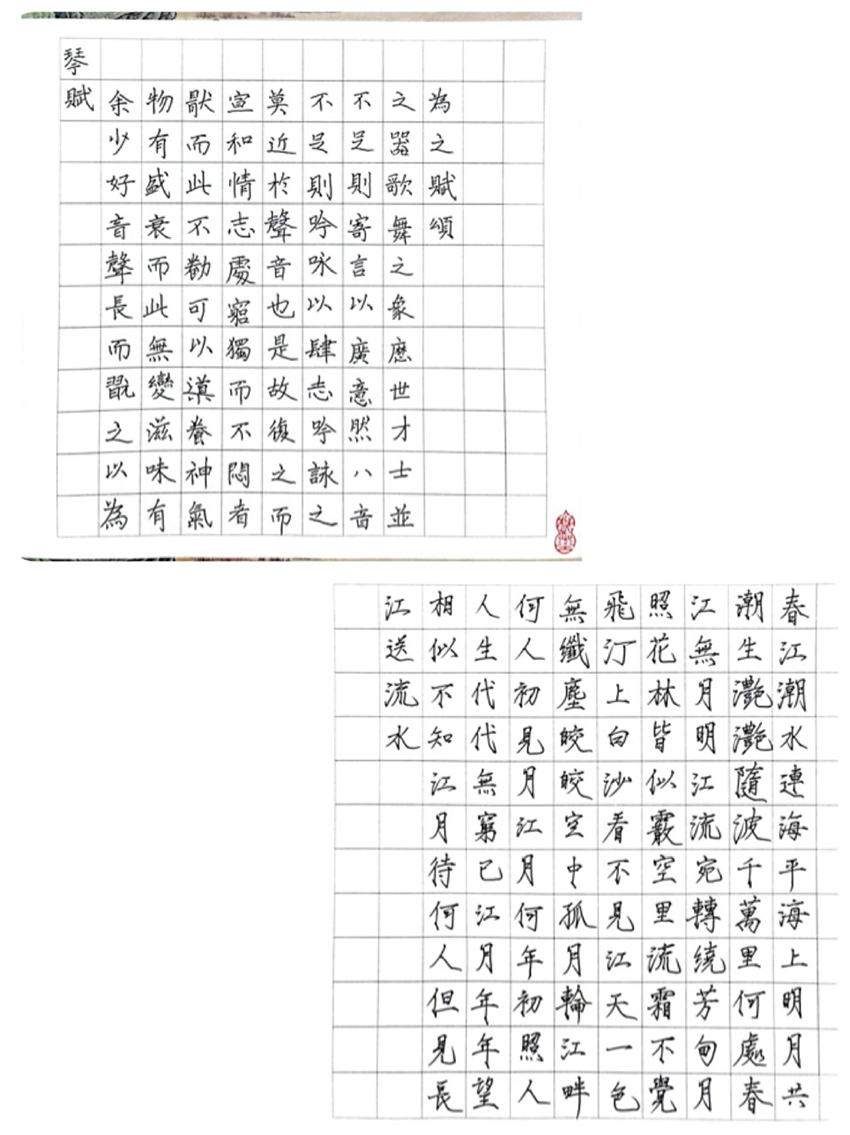 琴賦
余少好音聲長而翫之以為
物有盛衰而此無變滋味有
猒而此不勌可以導養神氣
宣和情志處窮獨而不悶者
莫近於聲音也是故復之而
不足則吟咏以肆志吟詠之
不足則寄言以廣意然八音
之器歌舞之象歷世才士並
為之賦頌
春江潮水連海平海上明月共
潮生灔灔隨波千萬里何處春
江無月明江流宛轉繞芳甸月
照花林皆似霰空里流霜不覺
飛汀上白沙看不見江天一色
無纖塵皎皎空中孤月輪江畔
何人初見月江月何年初照人
人生代代無窮已江月年年望
相似不知江月待何人但見長
江送流水